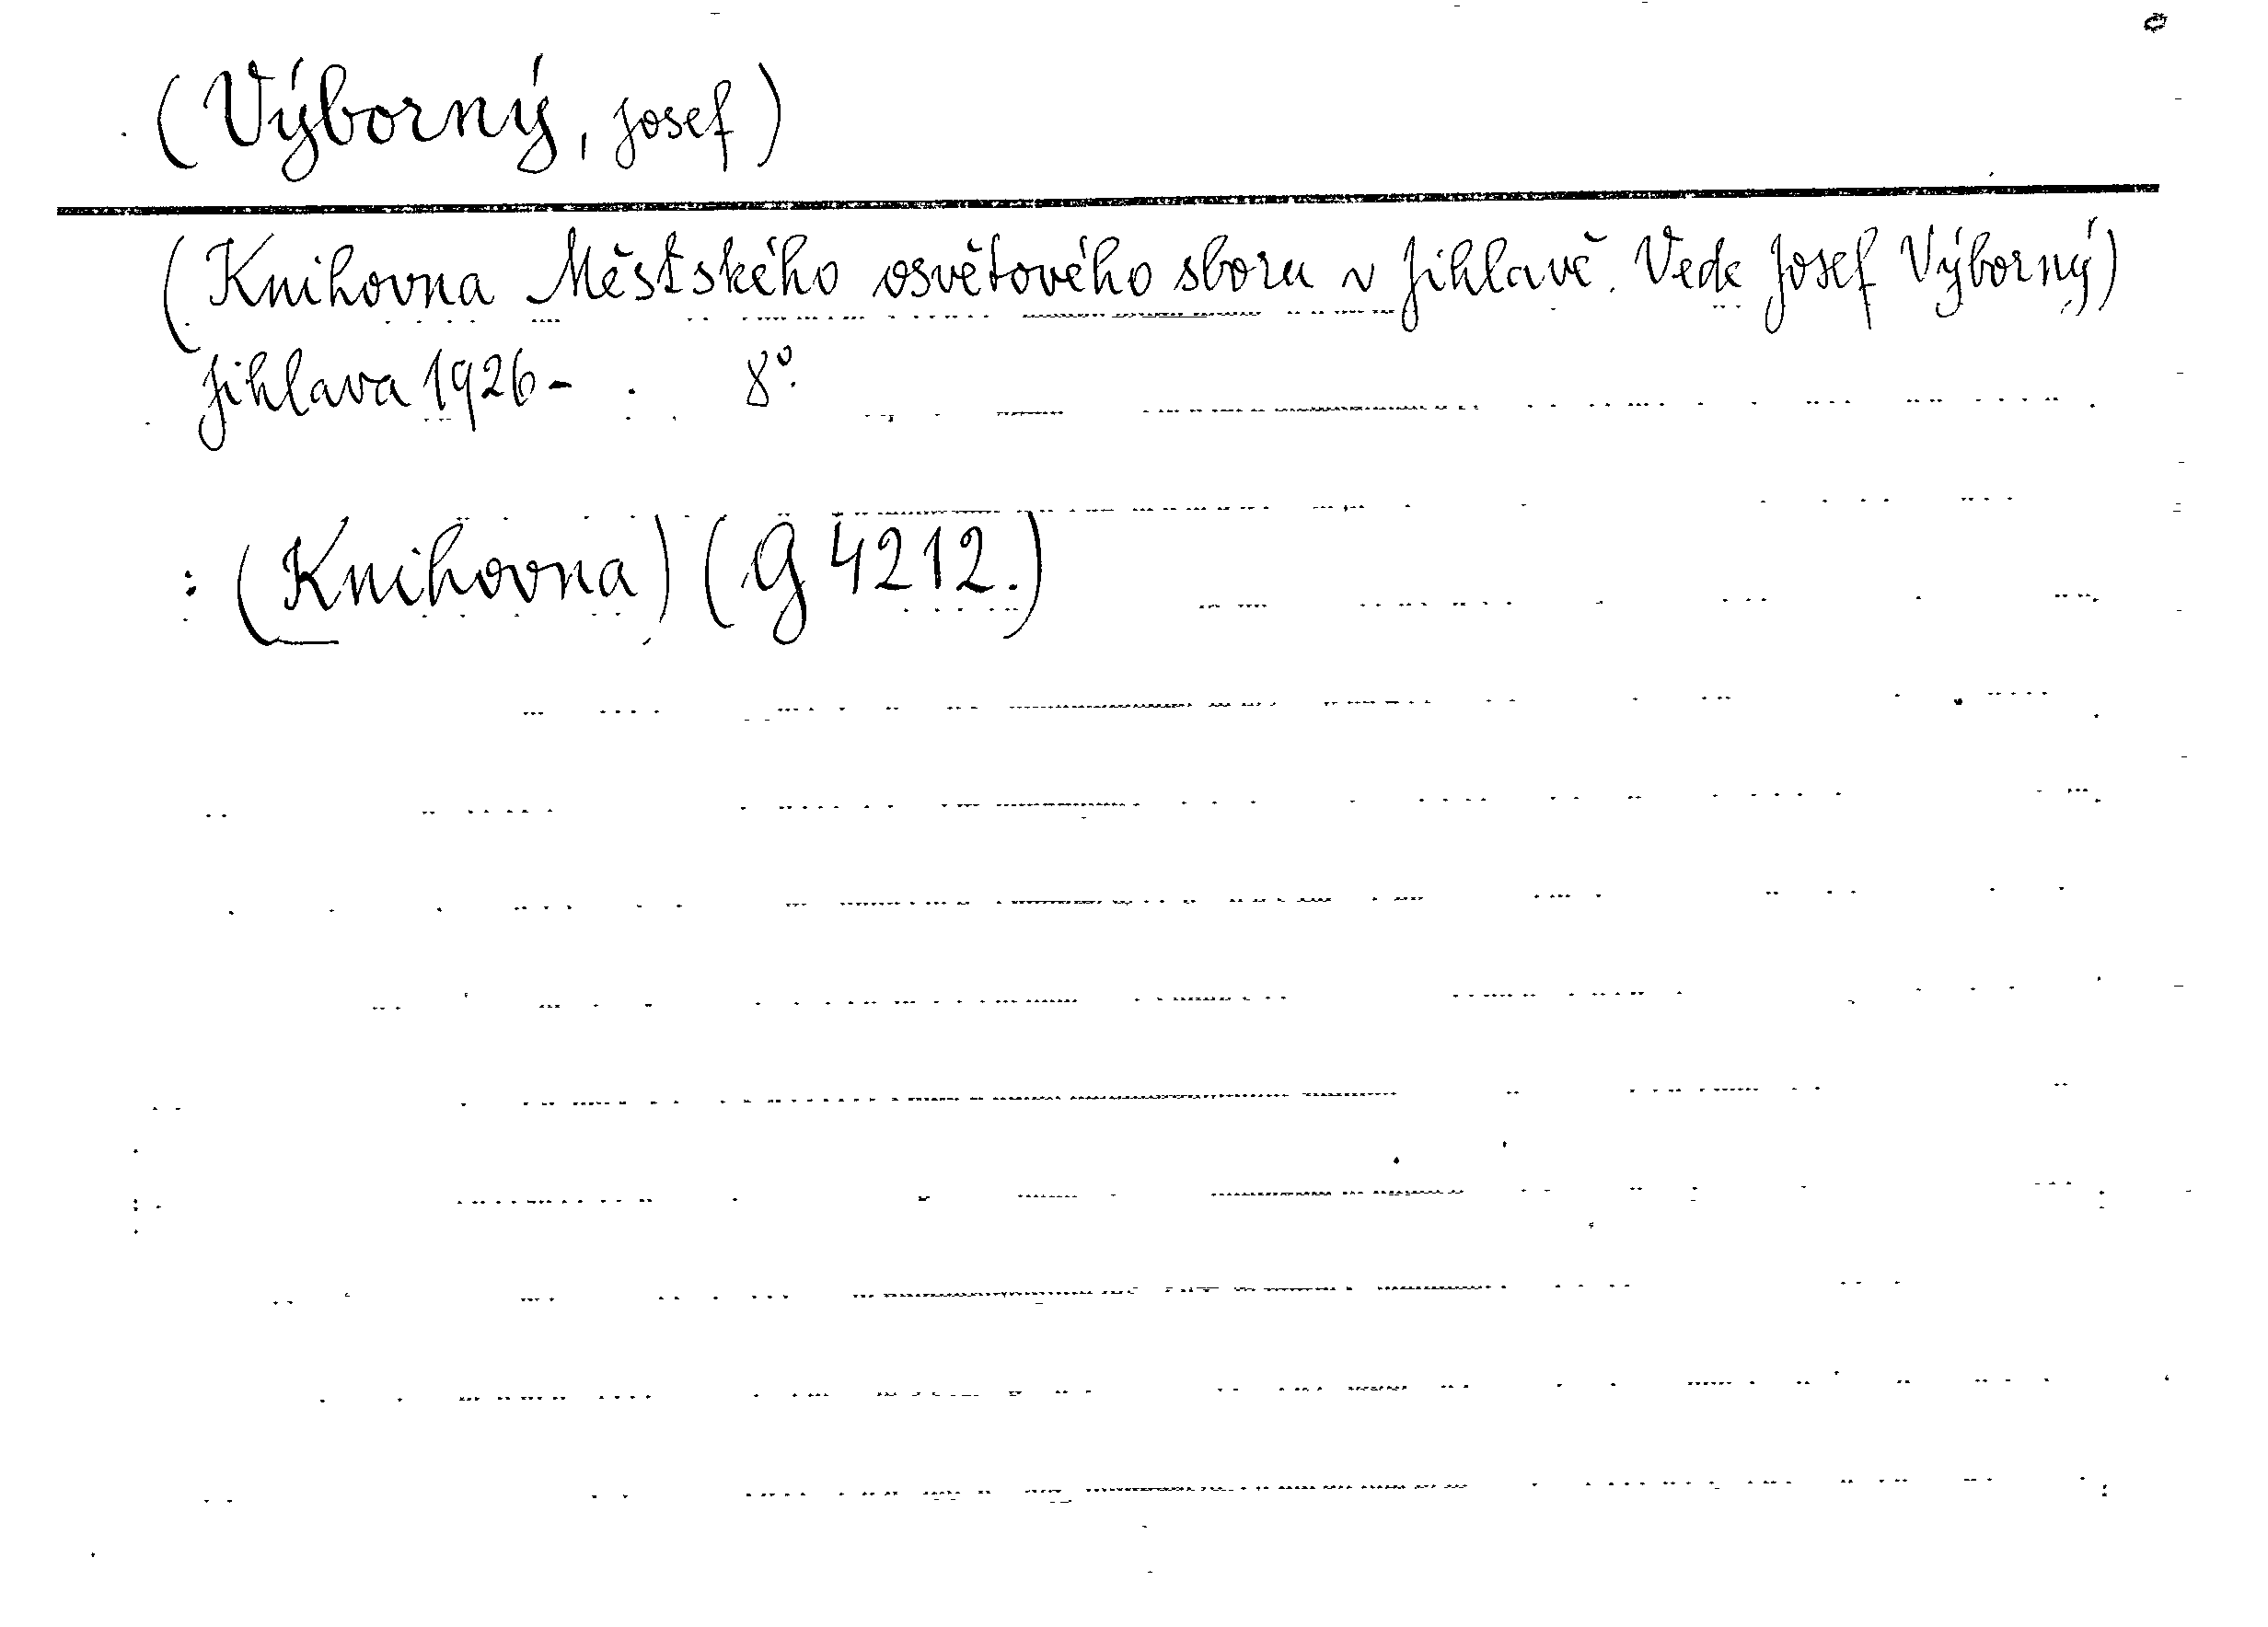 (Výborný, Josef)
(Knihovna Městského osvětového sboru v Jihlavě. Vede Josef Výborný)
Jihlava 1926- 8°.
: (Knihovna) (G 4212.)